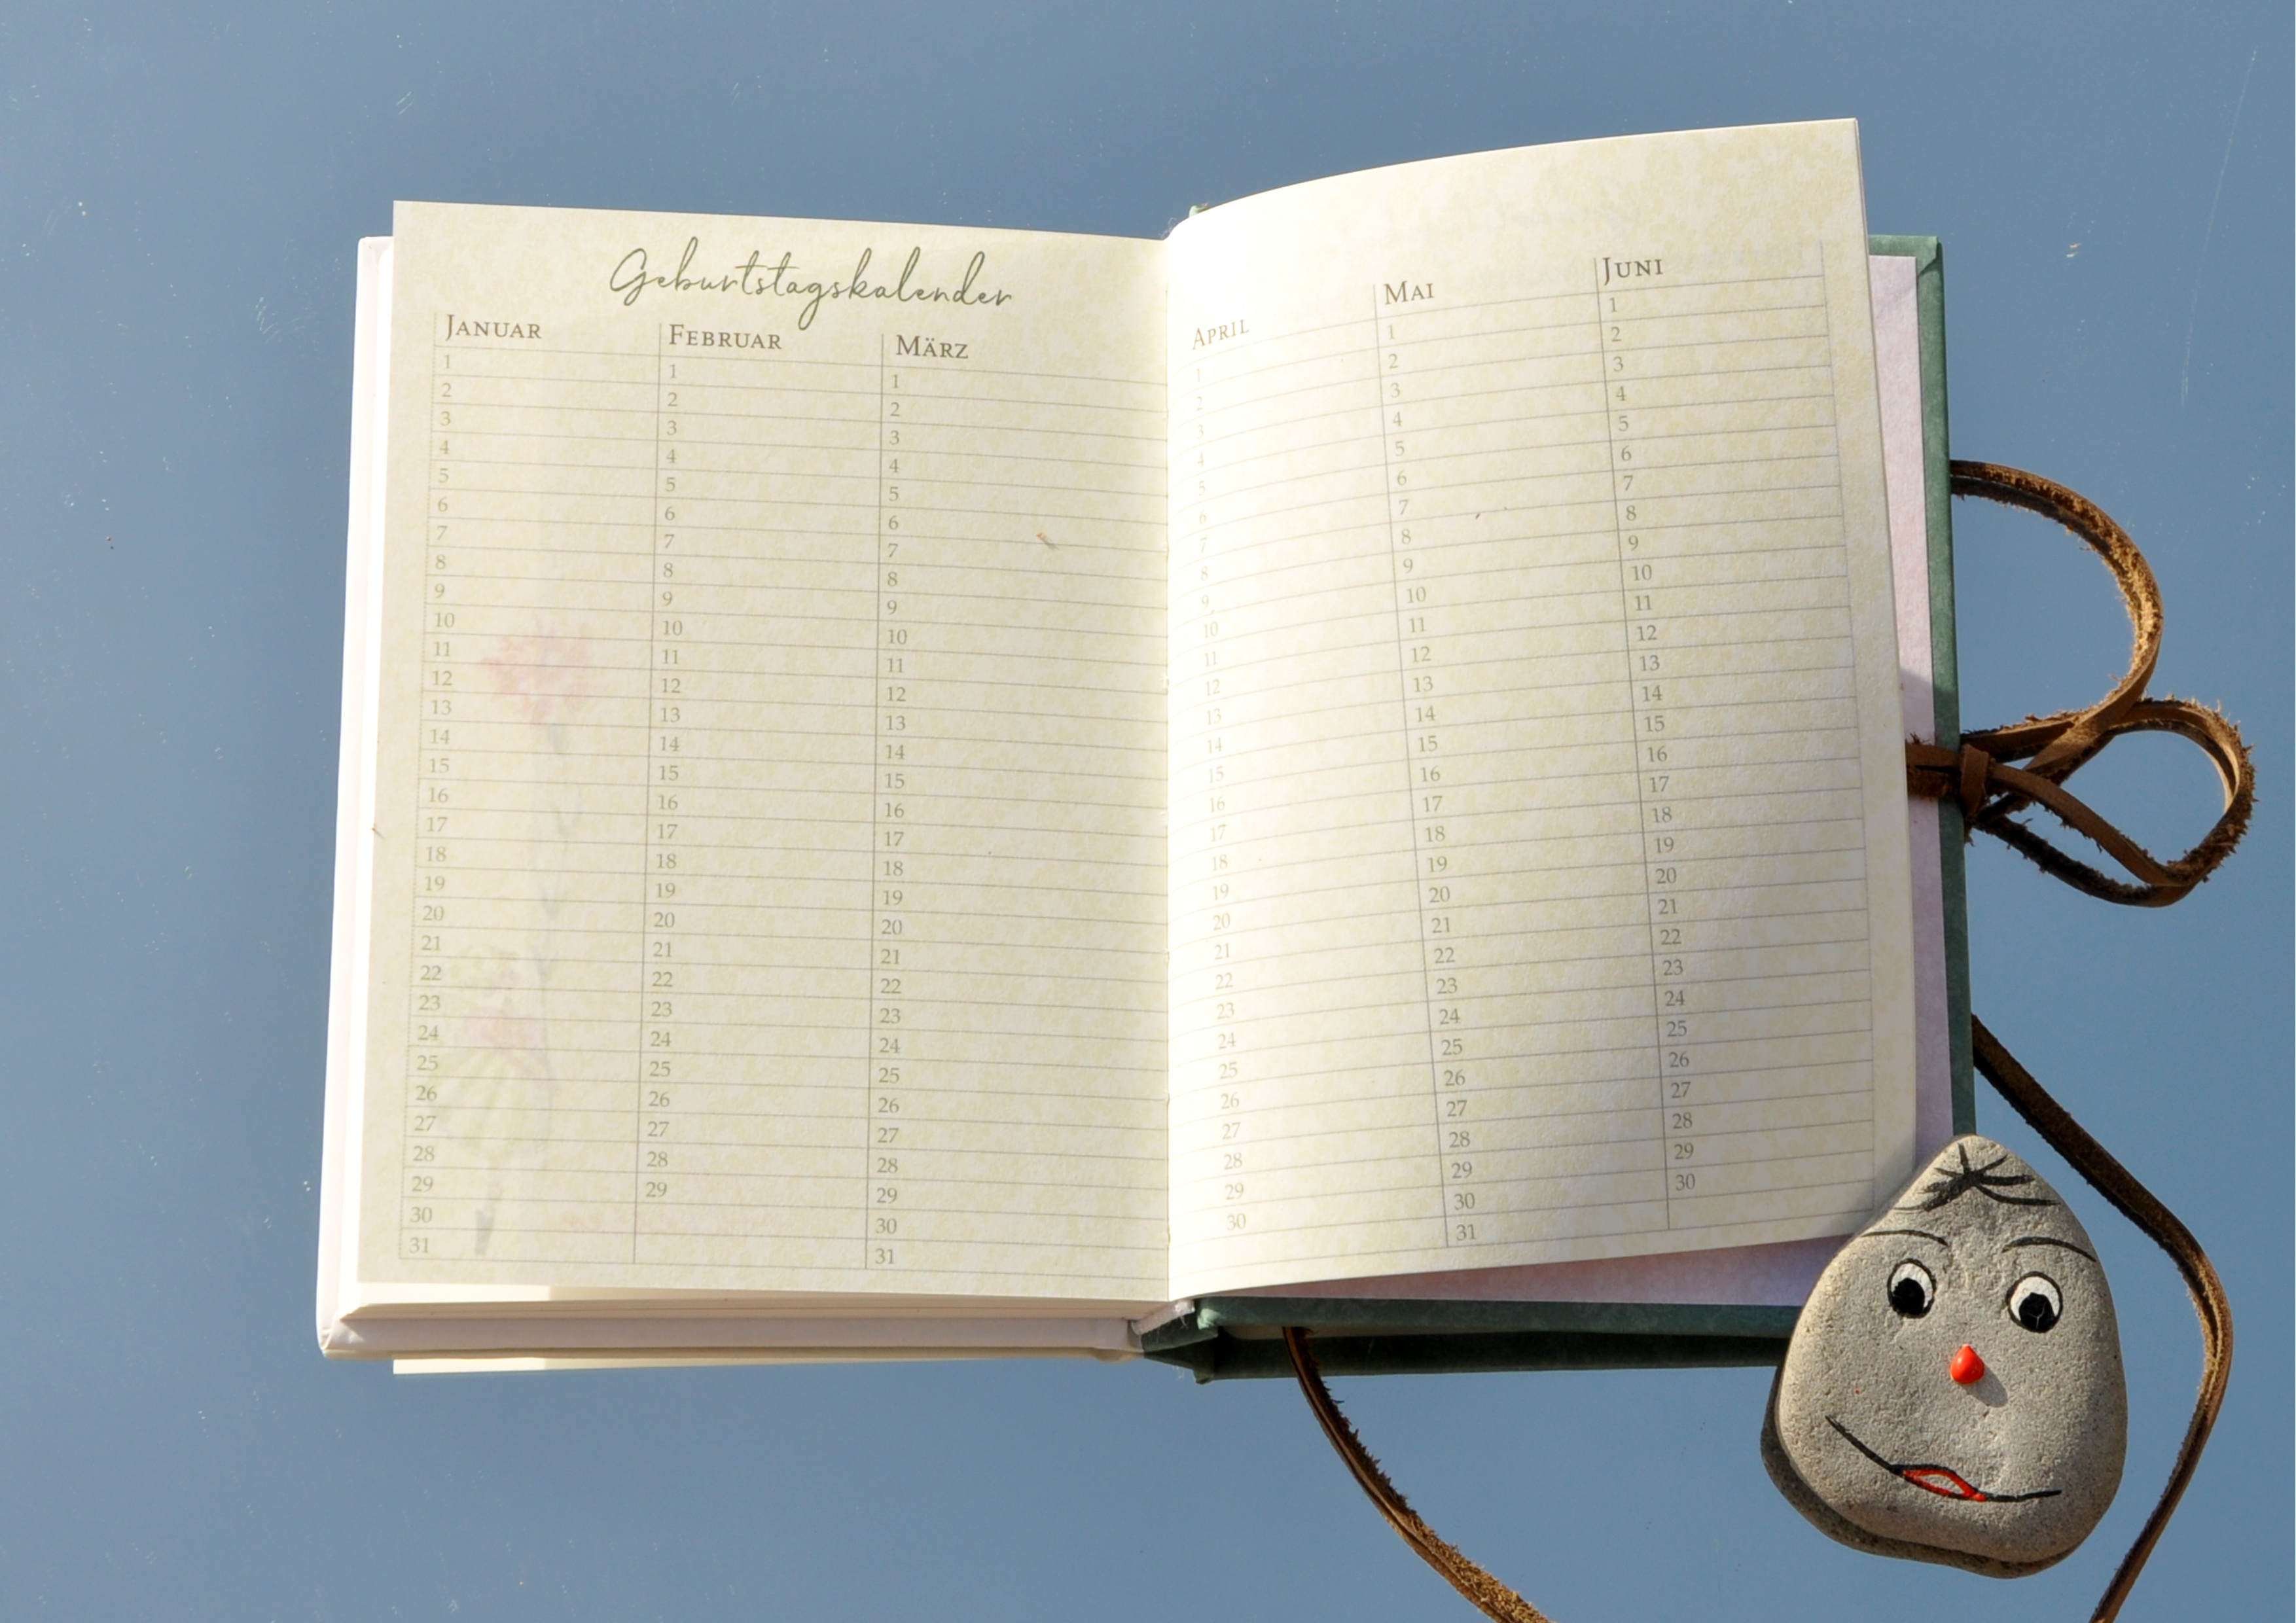 Geburtstagskalender
JANUAR FEBRUAR MÄRZ
1 1 1
2 2 2
3 3 3
4 4 4
5 5 5
6 6 6
7 7 7
8 8 8
9 9 9
10 10 10
11 11 11
12 12 12
13 13 13
14 14 14
15 15 15
16 16 16
17 17 17
18 18 18
19 19 19
20 20 20
21 21 21
22 22 22
23 23 23
24 24 24
25 25 25
26 26 26
27 27 27
28 28 28
29 29 29
30 30
31 31
APRIL MAI JUNI
1 1 1
2 2 2
3 3 3
4 4 4
5 5 5
6 6 6
7 7 7
8 8 8
9 9 9
10 10 10
11 11 11
12 12 12
13 13 13
14 14 14
15 15 15
16 16 16
17 17 17
18 18 18
19 19 19
20 20 20
21 21 21
22 22 22
23 23 23
24 24 24
25 25 25
26 26 26
27 27 27
28 28 28
29 29 29
30 30 30
31